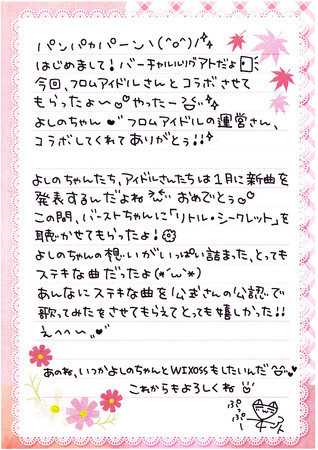 パンパカパーンヽ(^o^)/
はじめまして!バーチャルルリグアトだよ
今回、フロムアイドルさんとコラボさせて
もらったよ〜♡やったー
よしのちゃん♥フロムアイドルの運営さん、
コラボしてくれてありがとぅ!!
よしのちゃんたち、アイドルさんたちは1月に新曲を
発表するんだよね おめでとぅ
この間、バーストちゃんに「リトル・シークレット」を
聴かせてもらったよ!
よしのちゃんの想いがいっぱい詰まった、とっても
ステキな曲だったよ(*´ω`*)
あんなにステキな曲を公式さんの公認で
歌ってみたをさせてもらえてとっても嬉しかった!!
えへへ〜♥
あのね、いつかよしのちゃんとWIXOSSもしたいんだ
これからもよろしくね
ぷっぷー